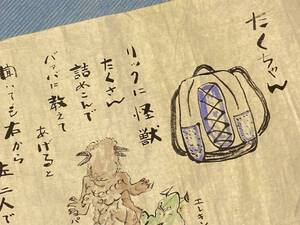 たくちゃん
リックに怪獣
たくさん
詰めこんで
バァバに教えて
あげると
聞いても右から
左二人で
エレキン